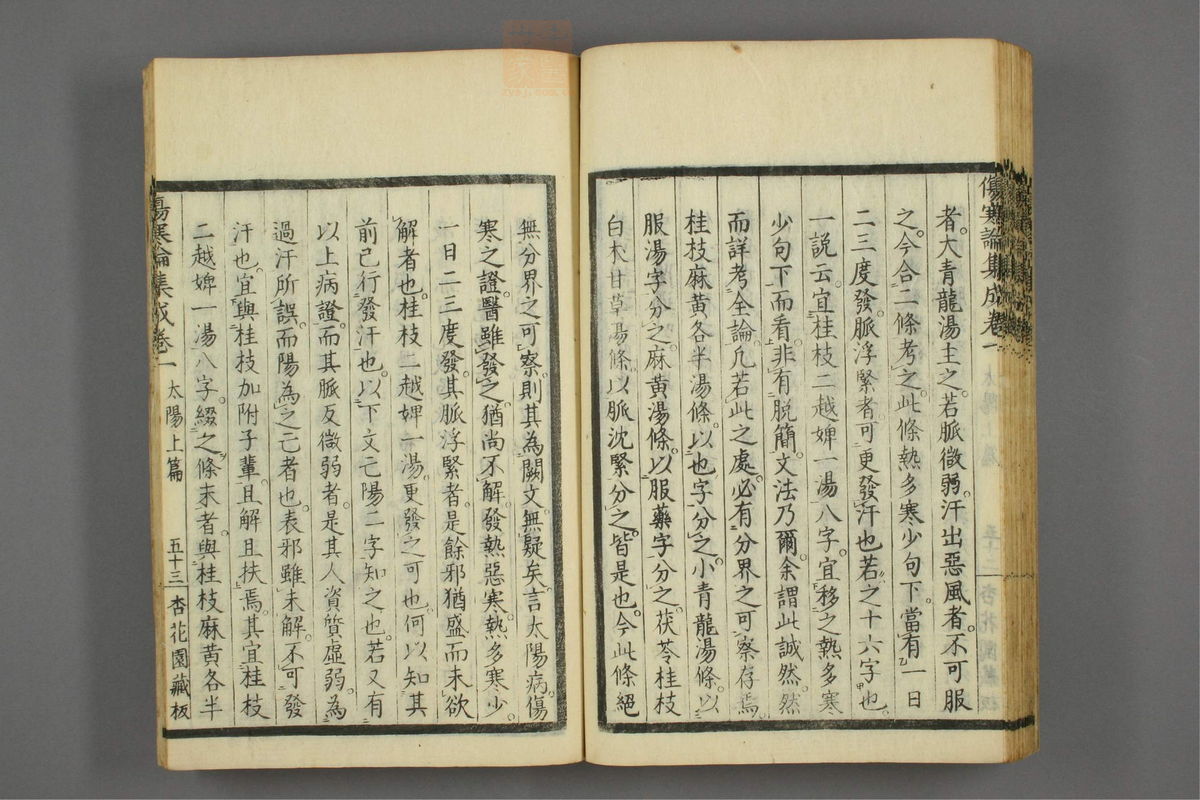 傷寒論集成卷一
者大青龍湯主之若脈微弱汗出惡風者不可服
之今合二條考之此條熱多寒少句下當有一日
二三度發脈浮緊者可更發汗也若之十六字也
一說云宜桂枝二越婢一湯八字宜移之熱多寒
少句下而看非有脫簡文法乃爾余謂此誠然然
而詳考全論凡若此之處必有分界之可察存焉
桂枝麻黃各半湯條以也字分之小青龍湯條以
服湯字分之麻黃湯條以服藥字分之茯苓桂枝
白朮甘草湯條以脈沈緊分之皆是也今此條絕
無分界之可察則其為闕文無疑矣言太陽病傷
寒之證醫雖發之猶尚不解發熱惡寒熱多寒少
一日二三度發其脈浮緊者是餘邪猶盛而未欲
解者也桂枝二越婢一湯更發之可也何以知其
前已行發汗也以下文亡陽二字知之也若又有
以上病證而其脈反微弱者是其人資質虛弱為
過汗所誤而陽為之亡者也表邪雖未解不可發
汗也宜與桂枝加附子輩且解且扶焉其宜桂枝
二越婢一湯八字綴之條末者與桂枝麻黃各半
傷寒論集成卷一 太陽上篇 五十三 杏花園藏板